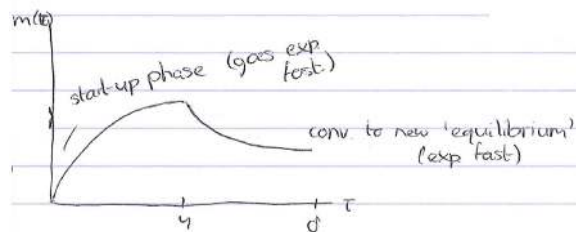 m(t)
start-up phase (goes exp.
fast)
conv. to new 'equilibrium'
(exp fast)
τ